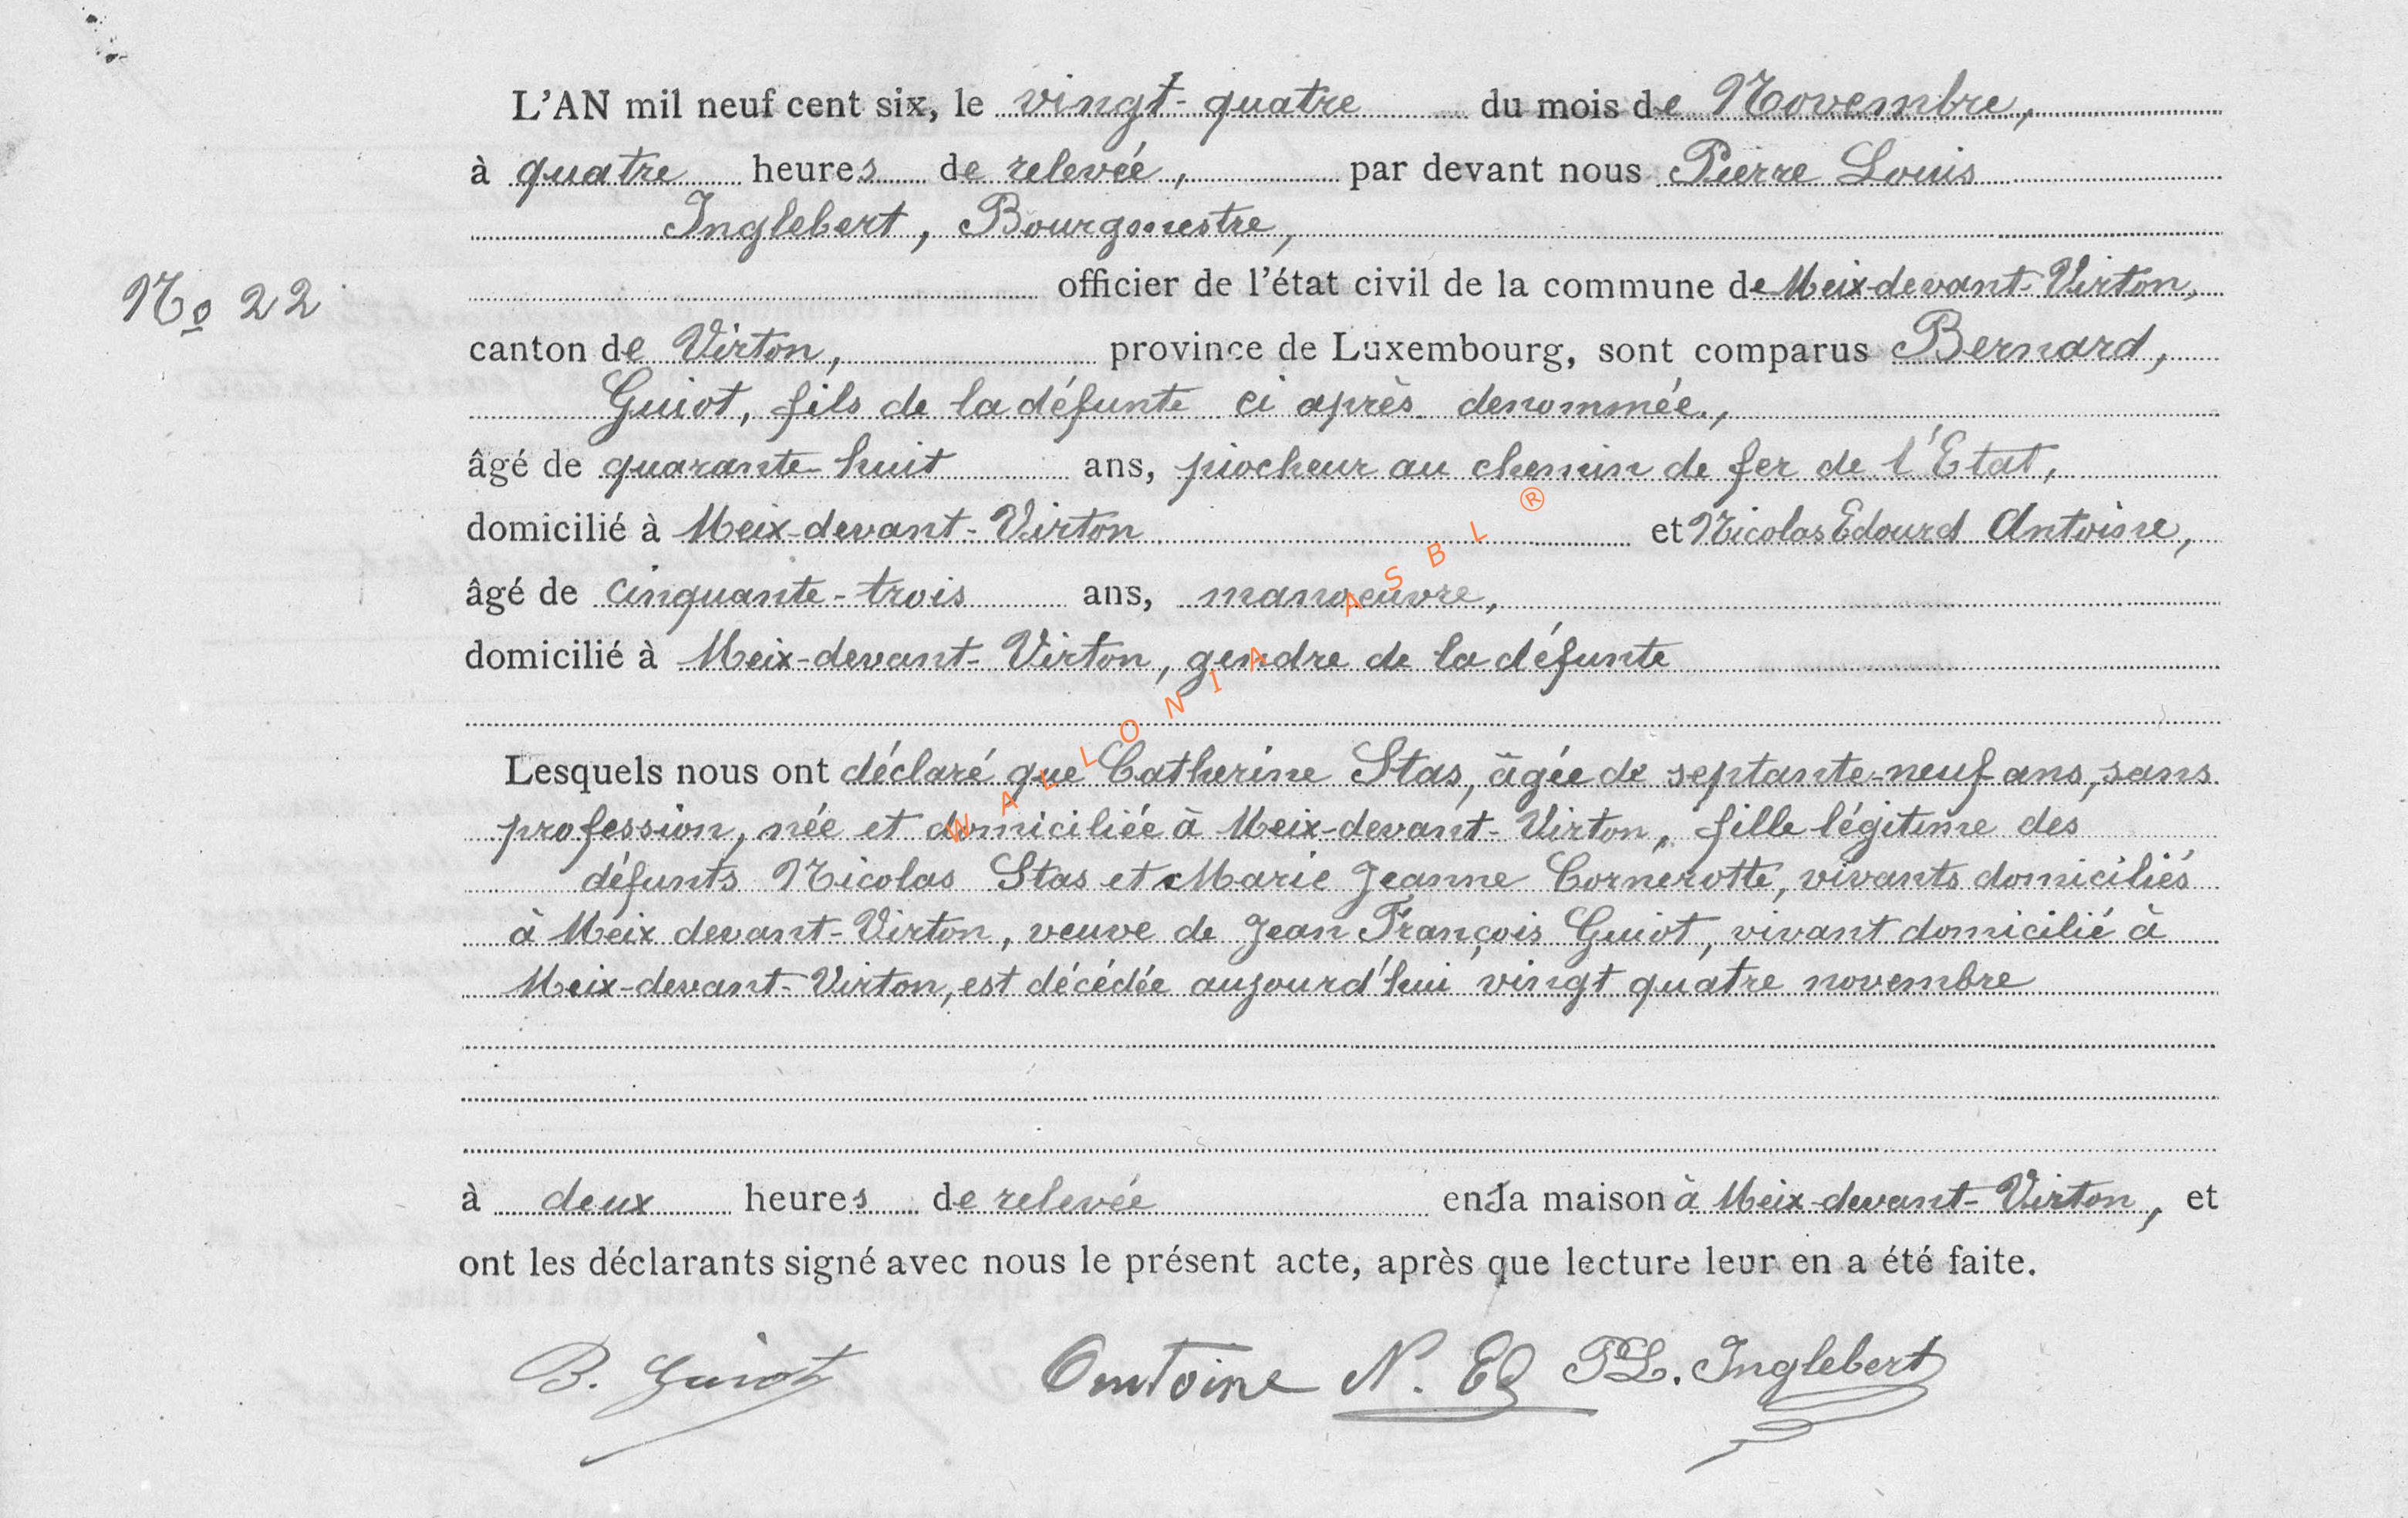 L'AN mil neuf cent six, le vingt-quatre du mois de Novembre,
à quatre heures de relevée, par devant nous Pierre Louis
Inglebert, Bourgmestre,
officier de l'état civil de la commune de Meix-devant-Virton,
No 22
canton de Virton, province de Luxembourg, sont comparus Bernard,
Guiot, fils de la défunte ci après denommée,
âgé de quarante-huit ans, piocheur au chemin de fer de l'Etat,
domicilié à Meix-devant-Virton et Nicolas Edourd Antoine,
âgé de cinquante-trois ans, manoeuvre,
domicilié à Meix-devant-Virton, gendre de la défunte
Lesquels nous ont déclaré que Catherine Stas, âgée de septante-neuf ans, sans
profession, née et domiciliée à Meix-devant-Virton, fille légitime des
défunts Nicolas Stas et Marie Jeanne Cornerotte, vivants domiciliés
à Meix devant-Virton, veuve de Jean François Guiot, vivant domicilié à
Meix-devant-Virton, est décédée aujourd'hui vingt quatre novembre
à deux heures de relevée en la maison à Meix-devant-Virton, et
ont les déclarants signé avec nous le présent acte, après que lecture leur en a été faite.
B. Guiot Antoine N. Ed PL. Inglebert
WALLONIA ASBL ®